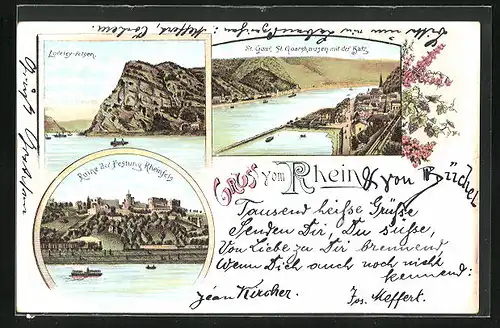 Meffert, Cochem
Loreley-Felsen
St. Goar, St. Goarshausen mit der Katz
Ruine der Festung Rheinfels
Gruss vom Rhein
& von Büchel
Tausend heiße Grüße
Senden Dir, Du süße,
Von Liebe zu Dir brennend
Wenn Dich auch noch nicht
kennend:
Jean Kircher.
Jos. Meffert.